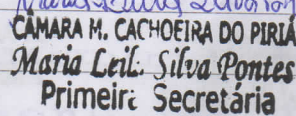 CÂMARA M. CACHOEIRA DO PIRIÁ
Maria Leil. Silva Pontes
Primeira Secretária